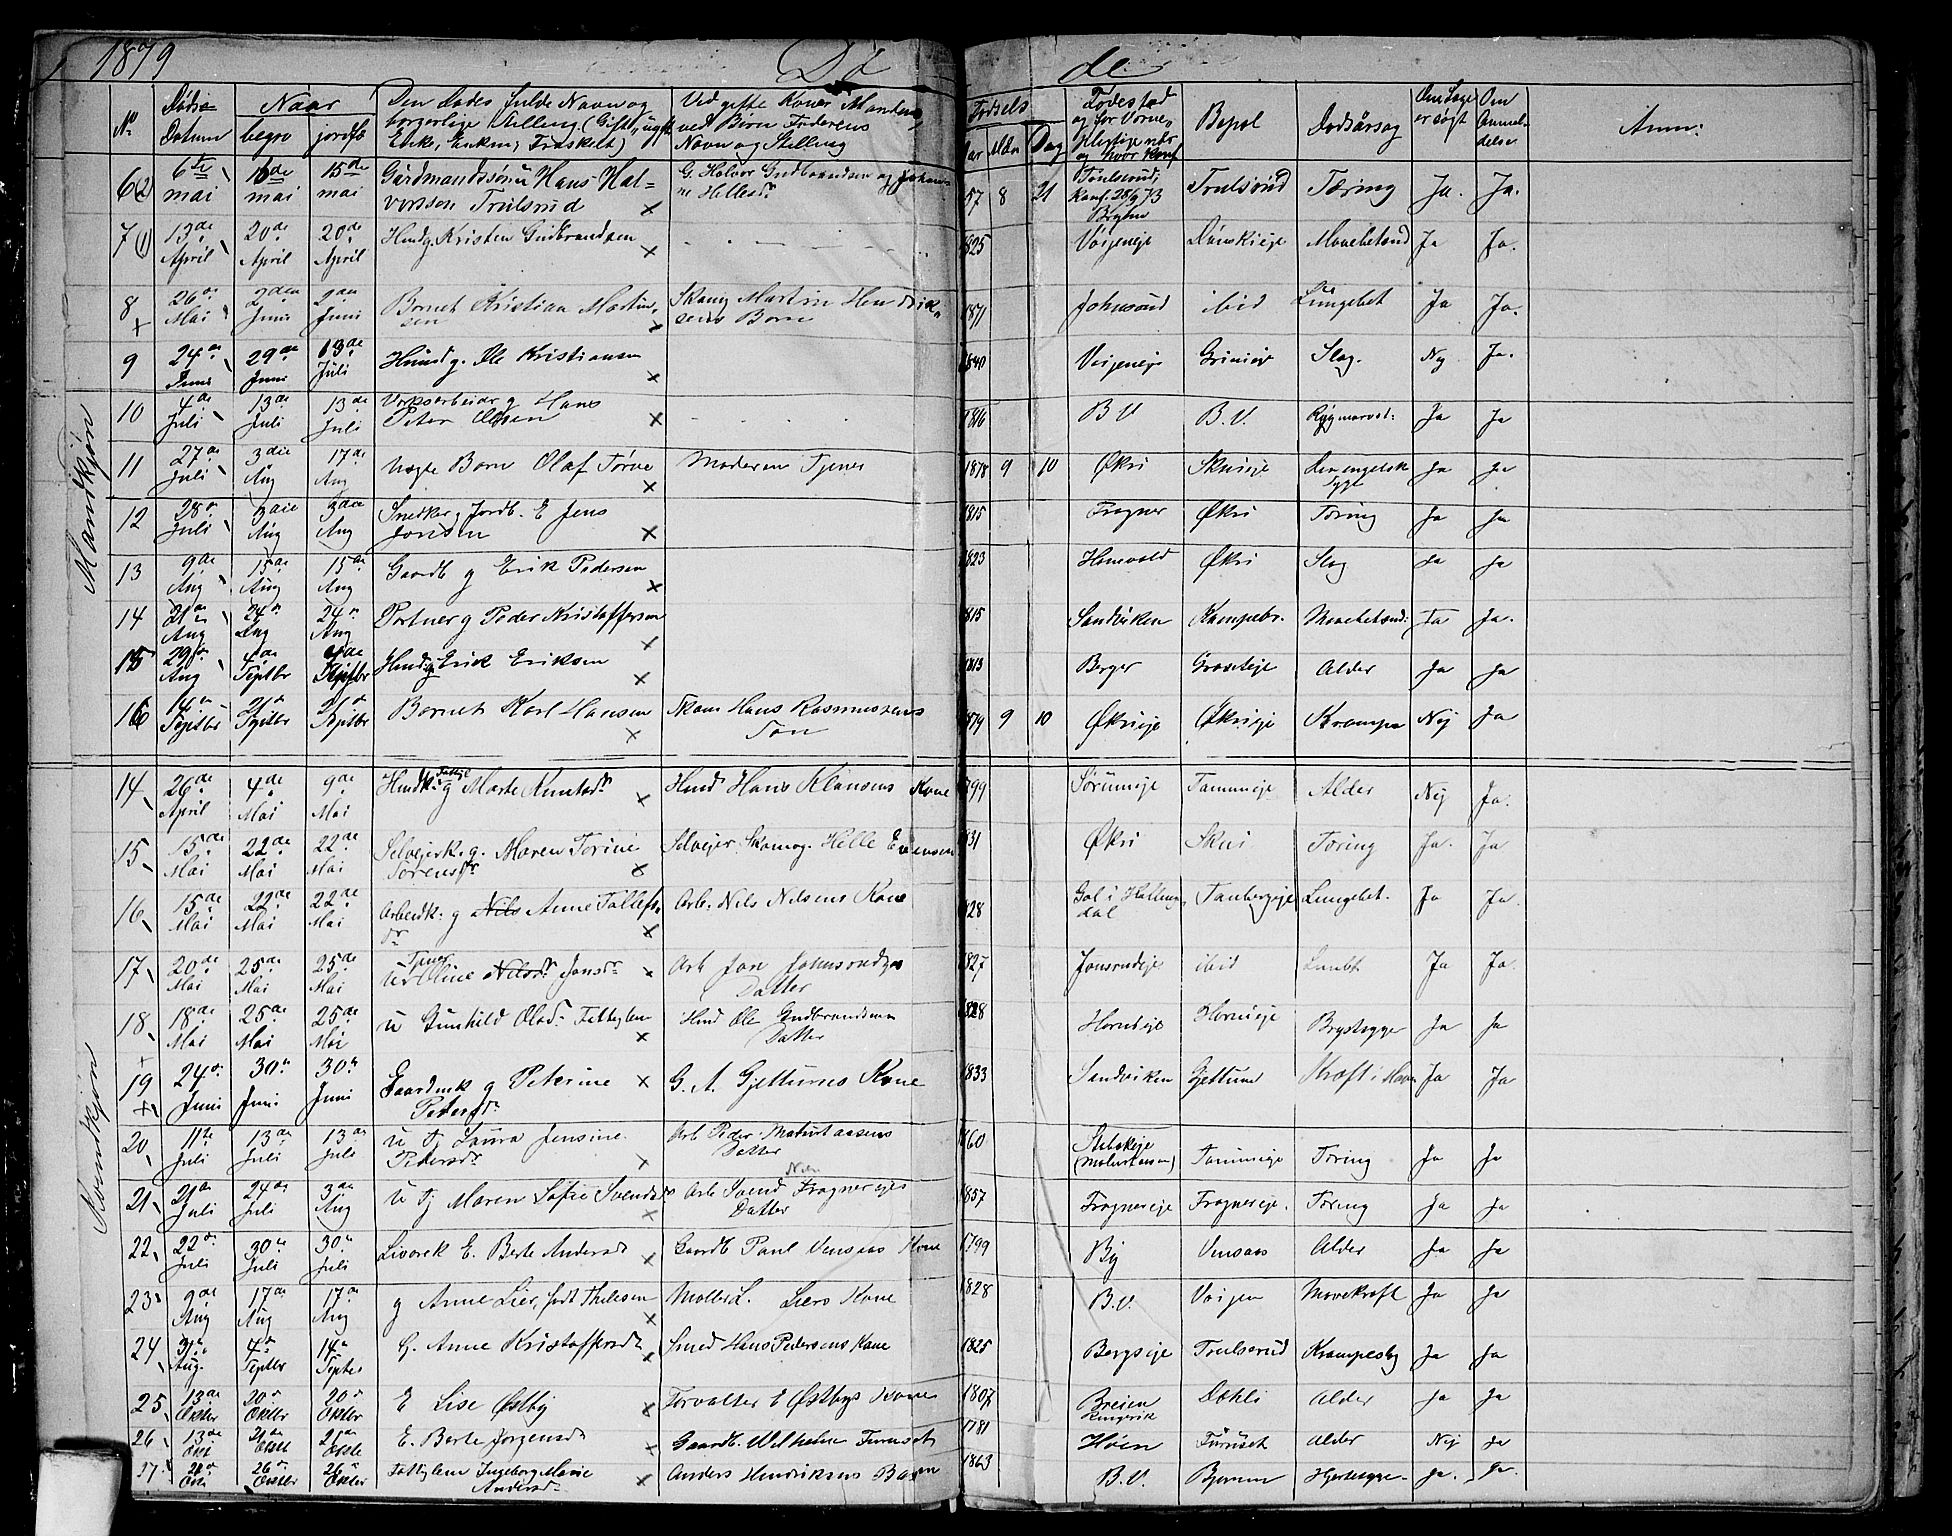 1879 Døde
No Dødsdatum Naar begr. jordf. Den Dødes fulde Navn og borgerlige Stilling (Gift, ugift, Enke, Enkem, Fraskilt) Ved gifte Koner Mandens, ved Børn Faderens Navn og Stilling Fødsels Aar Mdn Dag Fødested og for Værnepligtige naar og hvor konf. Bopæl Dødsårsag Om Læge er søgt Om Anmeldelse Anm:
Mandkjøn
6 (2) 6te mai 10de mai 15de mai Gårdmandssøn u Hans Halvorsen Trulsrud × G. Halvor Gudbrandsen og 57 8 21 Trulsrud, Konf. 28/9 73 Trulsrud Tæring Ja. Ja.
7 (1) 13de April 20de April 20de April Husm g Kristen Gudbrandsen × 1825 Vøijeneje Dønskieje Mavebetænd Ja Ja.
8 + 26de Mai 2den Juni 2den Juni Barnet Kristian Martinsen × Skom Martin Hendriksens Barn 1871 Johnsrud ibid Lungebet Ja Ja.
9 24de Juni 29de Juni 13de Juli Husm g. Ole Kristiansen × 1840 Vøijeneje Grinieje Slag. Nej Ja.
10 4de Juli 13de Juli 13de Juli Værksarbeider g Hans Peter Olsen × 1816 B.V. B.V. Rygmarvst: Ja Ja
11 27de Juli 3die Aug 17de Aug Uægte Barn Olaf Tørve × Moderen Tjener 1878 9 10 Økri Skuieje Den engelsk Syge Ja Ja
12 28de Juli 3die Aug 3die Aug Snedker g Jordb. E Jens Jonsen × 1815 Frogner Økri Tæring Ja Ja
13 9de Aug 15de Aug 15de Aug Gaardb g Erik Pedersen × 1823 Homvold Økri Slag Ja Ja
14 21de Aug 24de Aug 24de Aug Portner g Peder Kristoffersen × 1815 Sandviken Kampebr. Mavebetænd: Ja Ja.
15 29de Aug 4de Septbr Septbr Husm g Erik Eriksen × 1813 Berger Alder Ja Ja
16 14de Septbr 21de Septbr 21de Septbr Barnet Karl Hansen × Skom Hans Rasmussens Søn 1879 9 10 Økrieje Økrieje Krampe Nej Ja
Kvindkjøn
14 26de April 4de Mai 9de Mai Husmk: g Marte Knutsdr × Husm Hans Klausens Kone 1799 Sørumeje Tanumeje Alder Nej Ja.
15 15de Mai 22de Mai 22de Mai Selvejerk. g. Maren Torine Sørensdr × Selvejer Skomag. Helle Evensen 1831 Økri Skui Tæring Ja. Ja
16 15de Mai 22de Mai 22de Mai Arbeidk: g Nils Anne Tollefsdr × Arb: Nils Nilsens Kone 1828 Gol i Hallingdal Tanbergeje Lungebet. Ja Ja.
17 20de Mai 25de Mai 25de Mai u Tjener Oline Nilsdr Jonsdr × Arb Jon Johnsrudejes Datter 1827 Jonsrudeje ibid Lungbt Ja Ja.
18 + 18de Mai 25de Mai 25de Mai u Gunhild Olsdr Fattiglem × Husm Ole Gudbrandsens Datter 1828 Horneje Horneje Brystsyge Ja Ja
19 + 24de Juni 30te Juni 30te Juni Gaardmk g Peterine Petersdr × G. A. Gjettumes Kone 1833 Sandviken Gjettum Kræft i Maven Ja Ja
20 11te Juli 13de Juli 13de Juli u Tj Laura Jensine Pedersdr × Arb Peder Maturtaasens Datter 1860 Stabækeje (Maturtaasen) Tanumeje Tæring Ja Ja
21 21de Juli 24de Juli 3die Aug u Tj Maren Sofie Svendsdr × Arb Svend Nils. Frognerejes Datter 1857 Frognereje Frognereje. Tæring Ja Ja
22 22de Juli 30te Juli 30te Juli Livørek E. Berte Andersdr × Gaardb Paul Vensaas Kone 1799 By Vensaas Alder Ja Ja
23 9de Aug 17de Aug 17de Aug g Anne Lier, født Thilesen × Møller L. Liers Kone 1828 B.V. Vøijen Mavekræft Ja Ja
24 31te Aug. 4de Septbr 14de Septbr G. Anne Kristoffersdr × Smed Hans Pedersens Kone 1825 Bergseje Trulserud Krampeslag Ja Ja
25 13de Oktbr 20de Oktbr 20de Oktbr E Lise Østby × Forvalter E Østbys Kone 1807 Breien Ringerik Dæhli Alder Ja Ja
26 13de Okt 21de Oktb 21de Oktb E. Berte Jørgensdr × Gaardb. Wilhelm Furuset 1781 Høien Furuset Alder Nej Ja
27 Okt 26de Oktbr 26de Oktbr Fattiglem Ingeborg Marie Andersdr × Anders Hendriksens Barn 1863 B.V. Bjerum Hjertesyge. Ja. Ja.